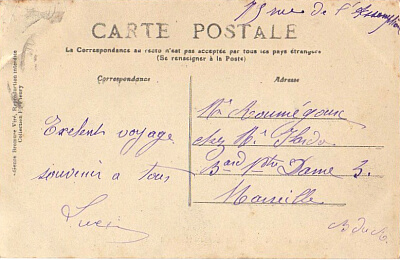 75 rue de l'Assomption
CARTE POSTALE
La Correspondance au recto n'est pas acceptée par tous les pays étrangers
(Se renseigner à la Poste)
Correspondance
Adresse
Exelent voyage
souvenir à tous
Mr Roumégoux
chez Mr
Bard Notre Dame 3.
Marseille
B du R
Reproduction interdite
Collection Fleury